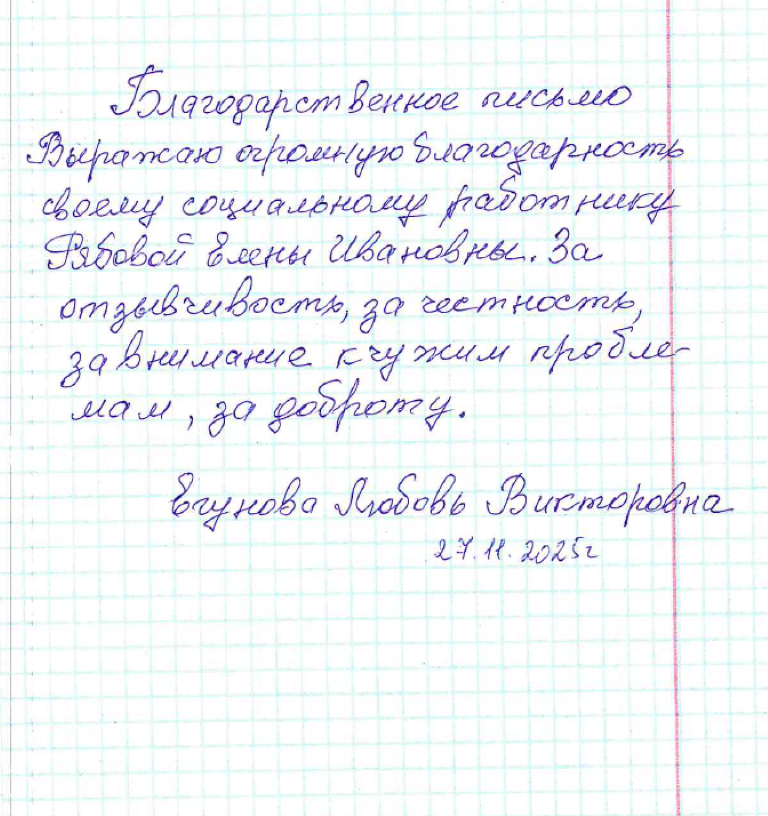 Благодарственное письмо
Выражаю огромную благодарность
своему социальному работнику
Рябовой Елены Ивановны. За
отзывчивость, за честность,
за внимание к чужим пробле-
мам, за доброту.
Егунова Любовь Викторовна
27.11.2025г